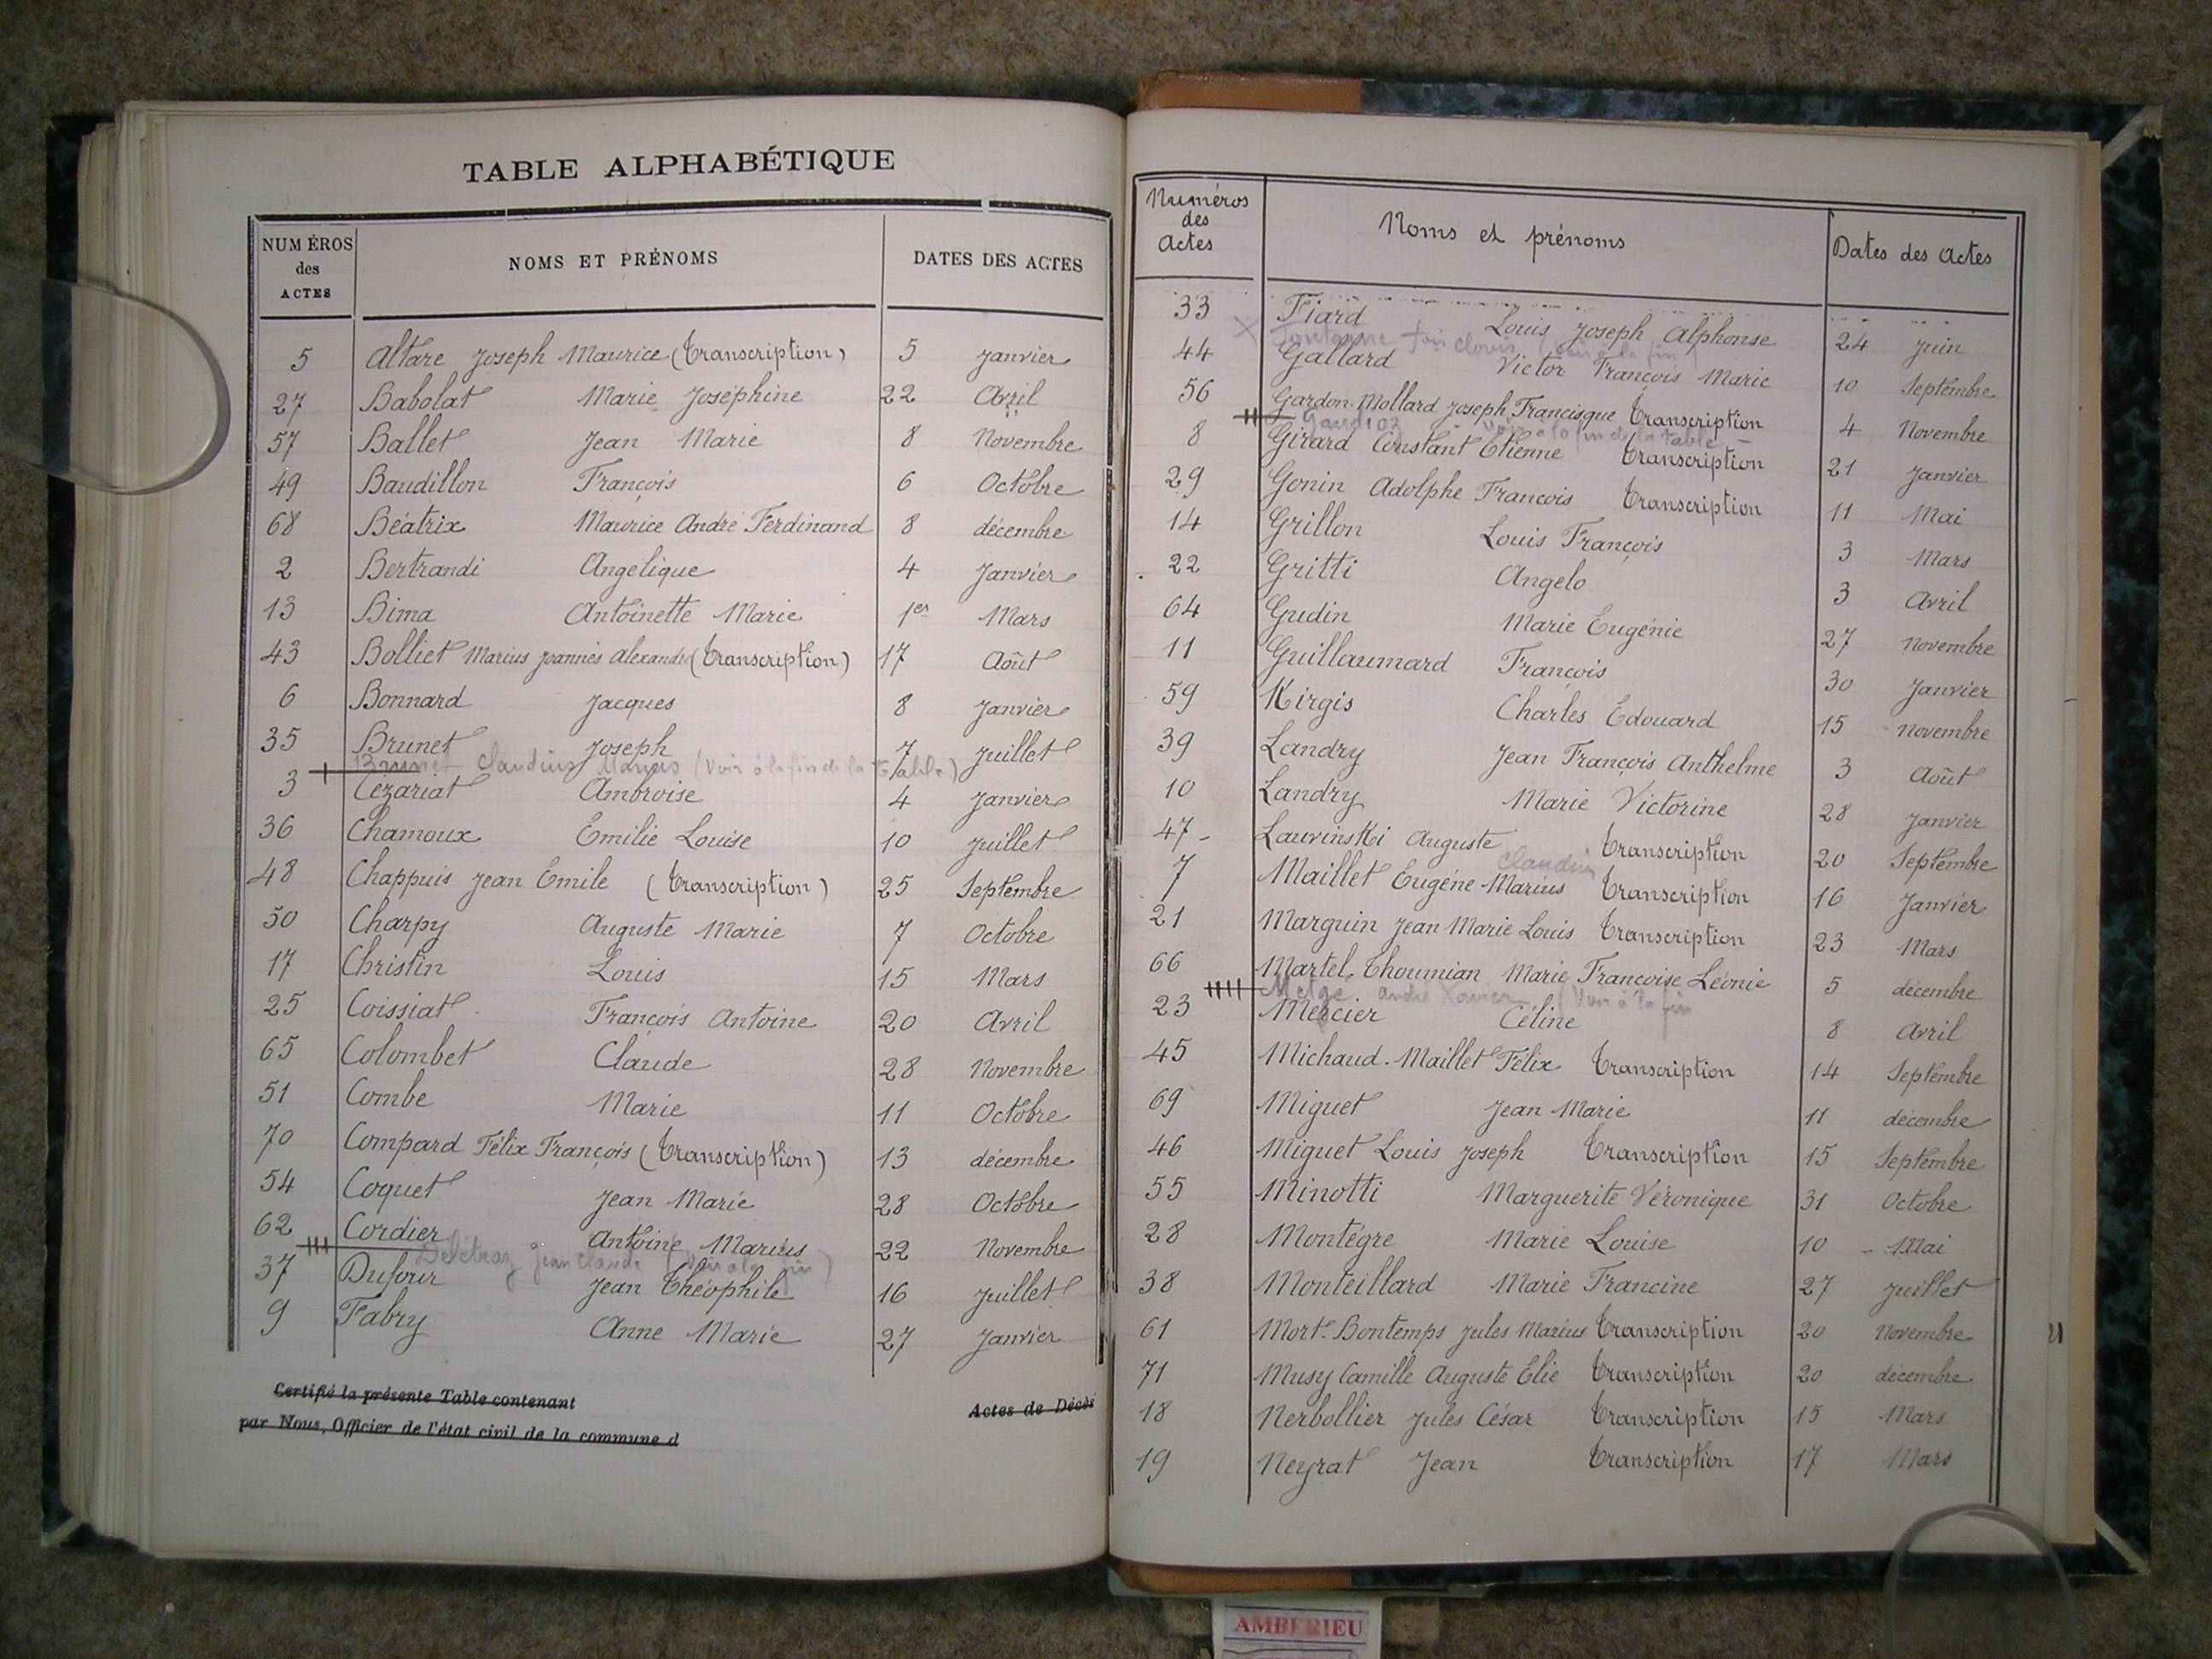 TABLE ALPHABÉTIQUE
NUMÉROS des ACTES NOMS ET PRÉNOMS DATES DES ACTES
5 Altare Joseph Maurice (Transcription) 5 Janvier
27 Babolat Marie Joséphine 22 Avril
57 Ballet Jean Marie 8 Novembre
49 Baudillon François 6 Octobre
68 Béatrix Maurice André Ferdinand 8 décembre
2 Bertrandi Angélique 4 Janvier
13 Bima Antoinette Marie 1er Mars
43 Bolliet Marius Joannès Alexandre (Transcription) 17 Août
6 Bonnard Jacques 8 Janvier
35 Brunet Joseph 7 Juillet
Brunet Claudius Marius (Voir à la fin de la table)
3 Cézariat Ambroise 4 Janvier
36 Chamoux Emilie Louise 10 Juillet
48 Chappuis Jean Emile (Transcription) 25 Septembre
50 Charpy Auguste Marie 7 Octobre
17 Christin Louis 15 Mars
25 Coissiat François Antoine 20 Avril
65 Colombet Claude 28 Novembre
51 Combe Marie 11 Octobre
70 Compard Félix François (Transcription) 13 décembre
54 Coquet Jean Marie 28 Octobre
62 Cordier Antoine Marius 22 Novembre
Delétraz Jean Claude (Voir à la fin)
37 Dufour Jean Théophile 16 Juillet
9 Fabry Anne Marie 27 Janvier
Certifié la présente Table contenant Actes de Décès
par Nous, Officier de l'état civil de la commune d
Numéros des Actes Noms et prénoms Dates des Actes
33 Fiard Louis Joseph Alphonse 24 Juin
X Clovis (Voir à la fin)
44 Gallard Victor François Marie 10 Septembre
56 Gardon-Mollard Joseph Francisque Transcription 4 Novembre
Gaudioz Voir à la fin de la table
8 Girard Constant Etienne Transcription 21 Janvier
29 Gonin Adolphe François Transcription 11 Mai
14 Grillon Louis François 3 Mars
22 Gritti Angelo 3 Avril
64 Gudin Marie Eugénie 27 Novembre
11 Guillaumard François 30 Janvier
59 Kirgis Charles Edouard 15 Novembre
39 Landry Jean François Anthelme 3 Août
10 Landry Marie Victorine 28 Janvier
47 Lauvinski Auguste Transcription 20 Septembre
Claudius
7 Maillet Eugène Marius Transcription 16 Janvier
21 Marguin Jean Marie Louis Transcription 23 Mars
66 Martel-Thoumian Marie Françoise Léonie 5 décembre
Melge André Xavier (Voir à la fin
23 Mercier Céline 8 Avril
45 Michaud-Maillet Félix Transcription 14 Septembre
69 Miguet Jean Marie 11 décembre
46 Miguet Louis Joseph Transcription 15 Septembre
55 Minotti Marguerite Véronique 31 Octobre
28 Montégre Marie Louise 10 Mai
38 Monteillard Marie Francine 27 Juillet
61 Mort-Bontemps Jules Marius Transcription 20 Novembre
71 Musy Camille Auguste Elie Transcription 20 décembre
18 Nerbollier Jules César Transcription 15 Mars
19 Neyrat Jean Transcription 17 Mars
AMBERIEU